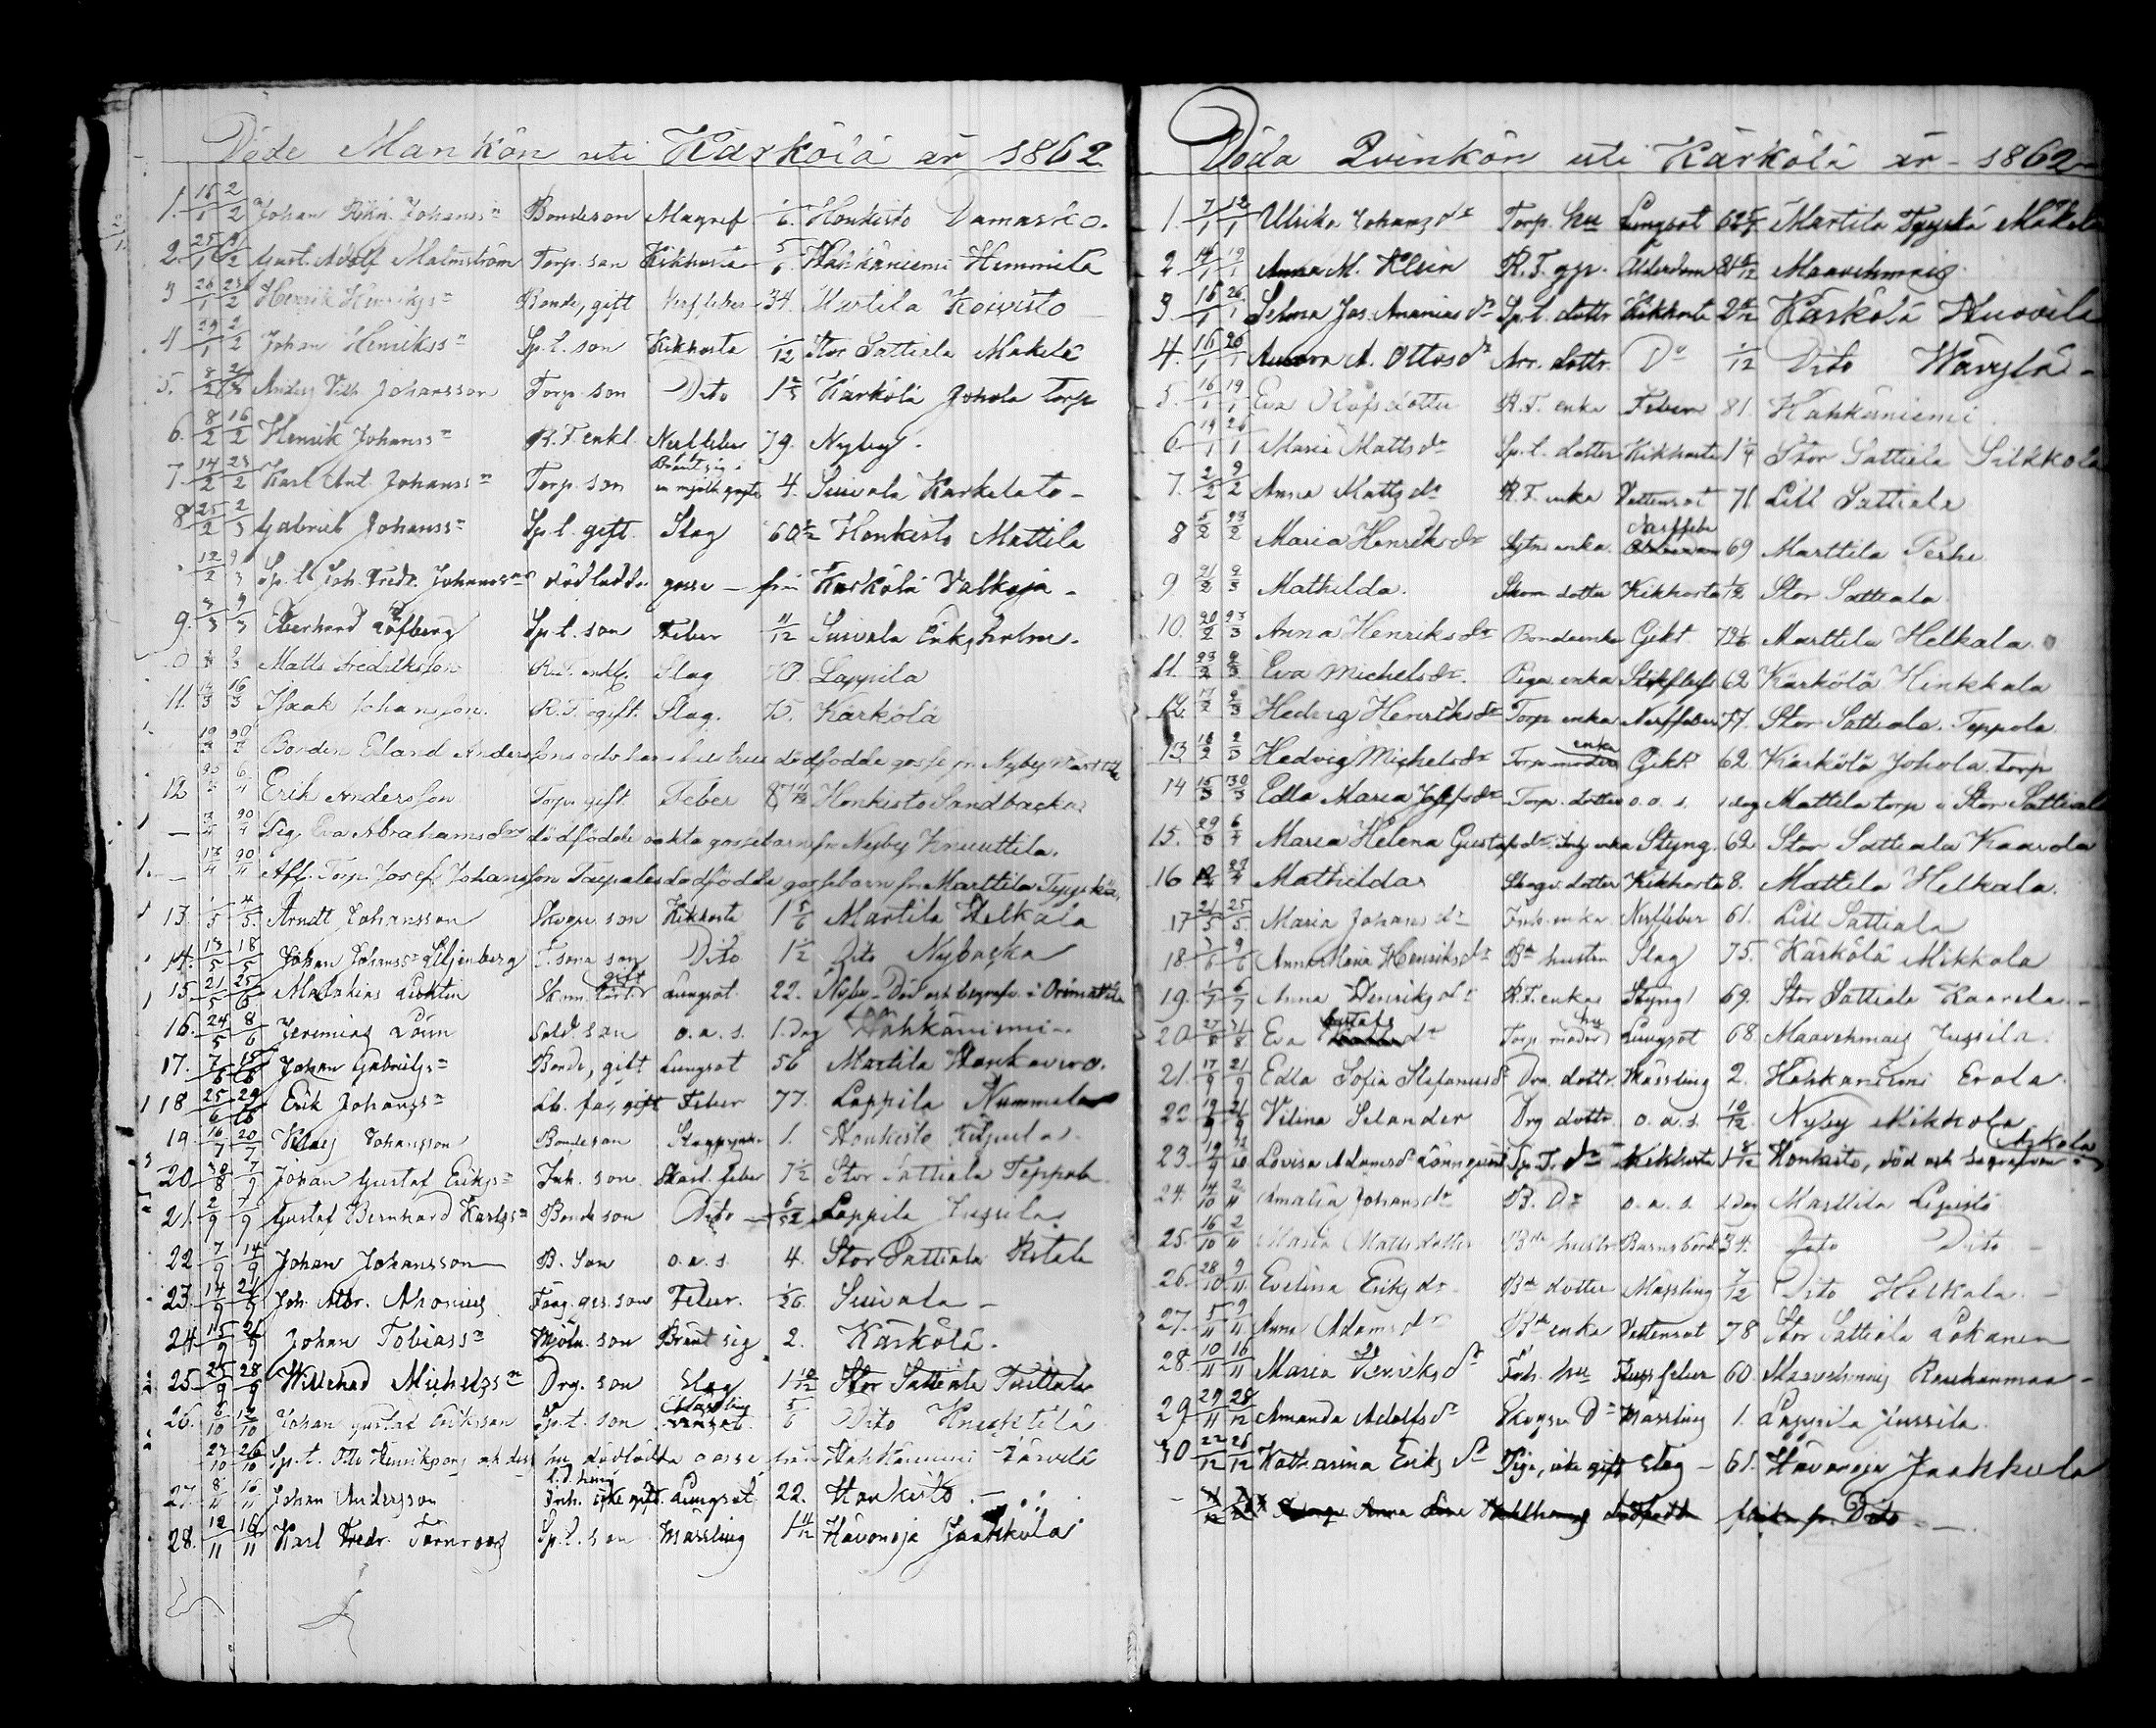 Döde Mankön uti Kärkölä år 1862
1. 16/1 2/2 Johan Johanss n Bondeson Magref 1/6 Honkisto Damasko.
2. 25/1 Gust. Adolf Malmström Torp. son Kikhosta 5/6 Hahkäniemi Hemmilä
3 26/1 23/2 Henrik Henrikss n Bonde, gift Nerffeber 34. Martila Koivisto
4 29/1 2/2 Johan Henrikss n Sp. l. son Kikhosta 1/12 Stor Sattiala Mäkelä
5. 8/2 Anders Vilh. Johansson Torp. son Dito Kärkölä Johola torp
6. 8/2 16/2 Henrik Johanss n R. F. enkl. Nerffeber 79. Nyby.
7. 14/2 23/2 Karl Ant. Johanss n Torp. son Bränt sig i en mjölk gryta 4. Suivala Karkelato -
8 25/2 2/3 Gabriel Johanss n Sp. l. gift. Slag 60 1/2 Honkisto Mattila
12/2 9/3 Sp. l. Joh. Fredr. Johanss ns dödfödde gosse — från Kärkölä Valkoja -
9. 3/3 9/3 Eberhard Löfberg Sp. l. son Feber 11/12 Suivala Eriksholm.
Matts Fredriksson R. F. enkl. Slag 70. Lappila
11. 14/3 16/3 Isaak Johansson. R. F. ogift. Slag. 75. Kärkölä
19/3 30/3 Bonden Eland Anderssons och hans hustrus dödfödde gosse fr. Nyby Marttila
12 6/4 Erik Andersson Torp. gift. Feber Honkisto Sandbacka
— 20/4 Pig. Eva Abrahamsdrs dödfödde oäkta gossebarn fr. Nyby Knuuttila.
— 17/4 20/4 Afl. Torp. Josef Johansson Taipales dödfödde gossebarn fr. Marttila Tyyskä.
13. 1/5 4/5. Arndt Johansson Skogv. son Kikhosta 1 5/6 Martila Helkala
14. 13/5 18/5 Johan Johanss n Liljenberg T. sons son Dito 1 1/2 Dito Nybacka
15 21/5 25/5 Malakias Lukten Skom. gift Lungsot 22. Nyby - Död och begrafv. i Orimattila
16. 24/5 8/6 Jeremias Lönn Sold. son o. a. s. 1. Dag Hähkäniemi -
17. 7/6 15/6 Johan Gabrielss n Bonde, gift Lungsot 56 Martila Hankavero.
18 25/6 29/6 Erik Johanss n Lb. far, gift Feber 77. Lappila Nummela
19. 16/7 20/7 Klas Johansson Bondeson 1. Honkisto
20. 30/8 7/9 Johan Gustaf Erikss n Inh. son Skarl. feber 7 1/2 Stor Sattiala Teppola
21. 2/9 7/9 Gustaf Bernhard Karlss n Bonde son Dito 6/52 Lappila Jussila
22 7/9 14/9 Johan Johansson B. Son o. a. s. 4. Stor Sattiala Ritala
23. 14/9 21/9 Joh. Albr. Ahonius Färg. ges. son Feber. 1/26. Suivala -
24. 15/9 21/9 Johan Tobiass n Mjöln. son Bränt sig 2. Kärkölä.
25. 25/9 28/9 Willehad Michelss n Drg. son Slag 1 10/12 Stor Sattiala Tuittula
26. 6/10 12/10 Johan Gustaf Eriksson Sp. l. son Mässling 5/6 Dito Knuhtila
27/10 26/10 Sp. l. Otto Henrikssons och dess hu dödfödda gosse från Hahkäniemi Järvelä
27. 8/11 16/11 Johan Andersson Inh. icke gift. Lungsot 22. Honkisto -
28. 12/11 16/11 Karl Fredr. Törnroos Sp. l. son Mässling 1 11/12 Hävonoja Jaakkola
Döda Qvinkön uti Kärkölä år - 1862 -
1. 7/1 12/1 Ulrika Johans dr Torp. hu Lungsot 62 Martila Tyyskä Mäkelä
2 14/1 19/1 Anna M. Klein R. F. gjr. Ålderdom Maavehmais
3 16/1 26/1 Selma Jos. Ananias dr Sp. l. dotter Kikhosta Kärkölä Huovila
4. 16/1 20/1 Aurora A. Ottos dr Arr. dottr. Do 1/12 Dito Wäväylä -
5. 16/1 19/1 Eva Olofsdotter R. F. enka Feber 81. Hähkäniemi
6. 19/1 26/1 Maria Matts dr Sp. l. dotter Kikhosta 1 1/4 Stor Sattiala Silkkola
7. 2/2 9/2 Anna Matts dr R. F. enka Vattensot 71. Lill Sattiala
8 5/2 23/2 Maria Henriks dr enka. Nerffeber 69 Marttila Perhe
9 21/2 2/3 Mathilda. Skom. dotter Kikhosta 1/2 Stor Sattiala.
10. 20/2 23/3 Anna Henriks dr Bondeenka Gikt Marttila Helkala.
11. 23/2 2/3 Eva Michels dr. Piga enka 62 Kärkölä Hinkkala
12. 17/2 2/3 Hedvig Henriks dr Torp. enka Nerffeber 77. Stor Sattiala. Teppola.
13. 18/2 2/3 Hedvig Michels dr Torp. enka Gikt 62. Kärkölä Johola torp
14 15/3 30/3 Edla Maria Josefs dr Torp. dotter o. o. s. 1 dag Mattila torp i Stor Sattiala
15. 29/3 6/4 Maria Helena Gustafs dr. Inh. enka Styng. 62. Stor Sattiala Kaarela
16 27/4 Mathilda Skogv. dotter Kikhosta 8. Mattila Helkala.
17 21/5 25/5. Maria Johans dr Inh. enka Nerffeber 61. Lill Sattiala
18. 3/6 9/6 Anna Maria Henriks dr Bd hustru Slag 75. Kärkölä Mikkola
19. 1/7 6/7 Anna Henriks dr R. F. enka Styng 69. Stor Sattiala Kaarela -
20. 27/8 31/8 Eva Gustafs dr Torp. hu Lungsot 68. Maavehmais Jussila.
21. 17/9 21/9 Edla Sofia Stefanus dr Drg. dottr. Mässling 2. Hähkäniemi Erola.
22. 19/9 21/9 Vilina Selander Drg dottr. o. a. s. 10/12. Nyby Mikkola
23. 19/9 Lovisa Adams dr Lönnqvist Sp. T. dr Kikhosta 1 8/12 Honkisto, död och begrafven i Askola
24. 14/10 2/11 Amalia Johans dr B. Dr o. a. s. 1 Dag Marttila Lepistö
25. 16/10 2/11 Maria Mattsdotter Bde hustr. Barnsbörd 34. Dito Dito -
26. 28/10 9/11 Evelina Eriks dr - Bde dotter Mässling 7/12 Dito Helkala. -
27. 5/11 9/11 Anna Adams dr Bde enka Vattensot 78 Stor Sattiala Lokanen
28. 10/11 16/11 Maria Henriks dr Inh. hu feber 60. Maavehmais Rauhanmaa -
29 29/11 28/12 Amanda Adolfs dr Skogv. Dr Mässling 1. Lappila Jussila.
30 22/12 26/12 Katharina Eriks dr Piga, icke gift Slag - 61. Hävonoja Jaakkola
Anna dödfödda flicka fr. Dito -